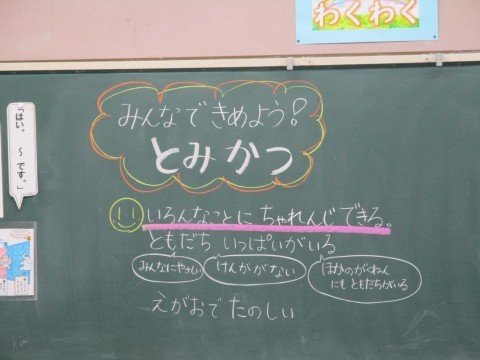 わくわく
みんなできめよう!
とみかつ
「はい。 ～ です。」
いろんなことにちゃれんじできる。
ともだち いっぱいがいる
みんなにやさしい
けんかがない
ほかのがくねん
にも ともだちがいる
えがおで たのしい